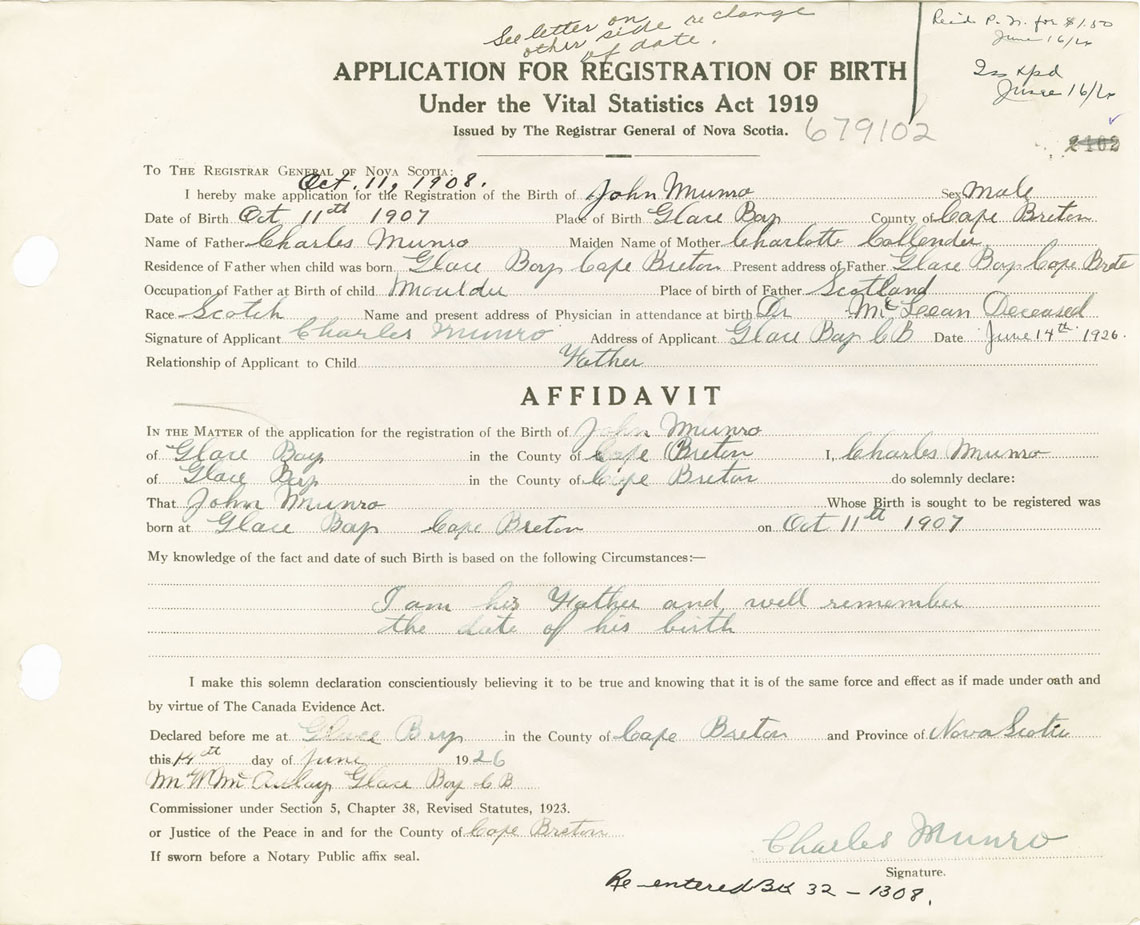 See letter on
other side re change
of date.
Rec'd P. N. for $1.50
June 16/26
June 16/26
APPLICATION FOR REGISTRATION OF BIRTH
Under the Vital Statistics Act 1919
Issued by The Registrar General of Nova Scotia.
679102
2102
TO THE REGISTRAR GENERAL OF NOVA SCOTIA:
Oct. 11, 1908.
I hereby make application for the Registration of the Birth of John Munro Sex Male
Date of Birth Oct 11th 1907 Place of Birth Glace Bay County of Cape Breton
Name of Father Charles Munro Maiden Name of Mother Charlotte Callender
Residence of Father when child was born Glace Bay Cape Breton Present address of Father Glace Bay Cape Breto
Occupation of Father at Birth of child Moulder Place of birth of Father Scotland
Race Scotch Name and present address of Physician in attendance at birth Dr McLean Deceased
Signature of Applicant Charles Munro Address of Applicant Glace Bay C B Date June 14th 1926.
Relationship of Applicant to Child Father
AFFIDAVIT
IN THE MATTER of the application for the registration of the Birth of John Munro
of Glace Bay in the County of Cape Breton I, Charles Munro
of Glace Bay in the County of Cape Breton do solemnly declare:
That John Munro Whose Birth is sought to be registered was
born at Glace Bay Cape Breton on Oct 11th 1907
My knowledge of the fact and date of such Birth is based on the following Circumstances:—
I am his Father and well remember
the date of his birth
I make this solemn declaration conscientiously believing it to be true and knowing that it is of the same force and effect as if made under oath and
by virtue of The Canada Evidence Act.
Declared before me at Glace Bay in the County of Cape Breton and Province of Nova Scotia
this 14th day of June 1926
McAulay Glace Bay C B
Commissioner under Section 5, Chapter 38, Revised Statutes, 1923.
or Justice of the Peace in and for the County of Cape Breton
If sworn before a Notary Public affix seal.
Charles Munro
Signature.
Re-entered Bk 32 - 1308.